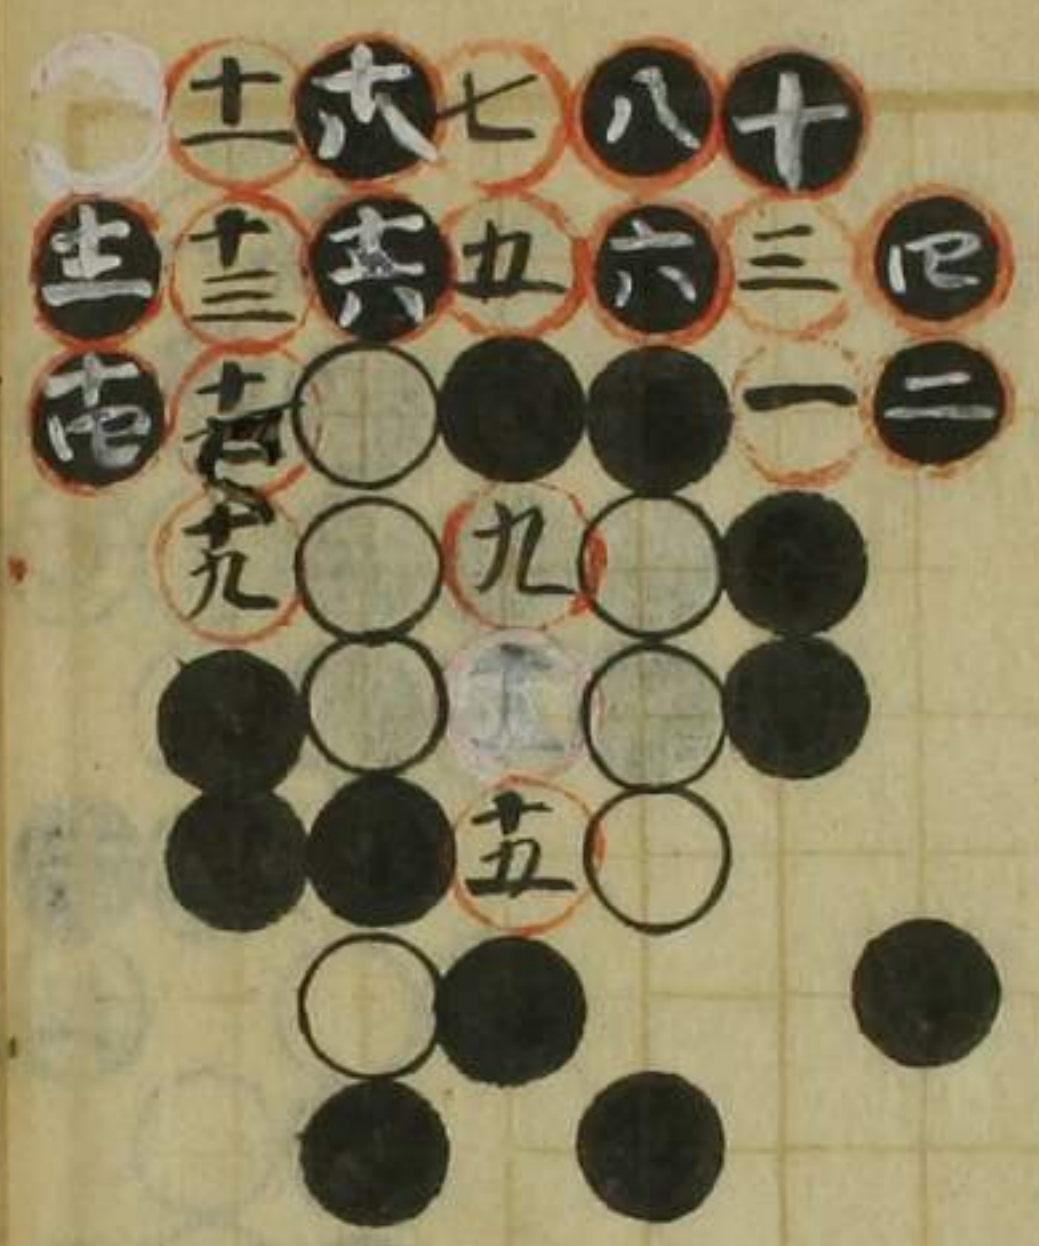 十一 十八 七 八 十
十二 十三 十六 五 六 三 四
十四 一 二
十九 九
十五